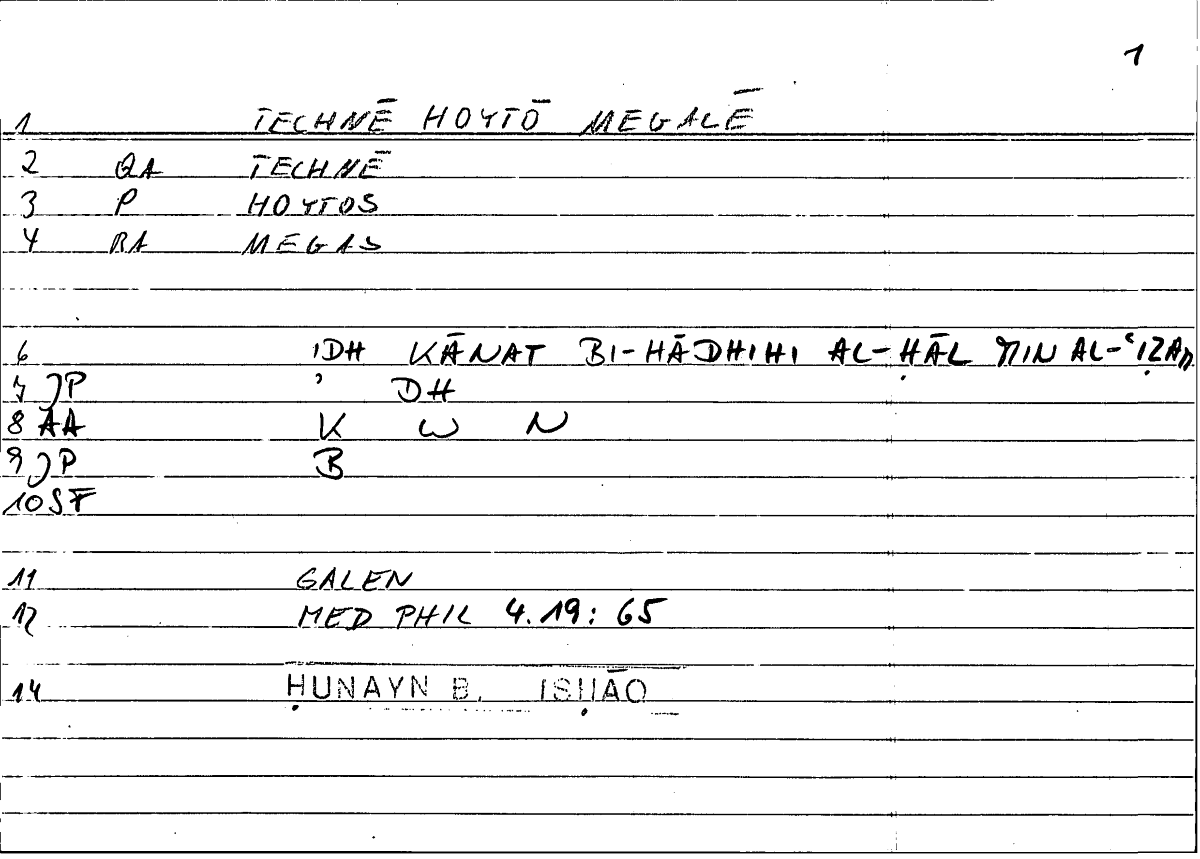 1
1 TECHNĒ HOYTŌ MEGALĒ
2 QA TECHNĒ
3 P HOYTOS
4 RA MEGAS
6 'IDH KĀNAT BI-HĀDHIHI AL-ḤĀL MIN AL-ʿIẒAM
7 JP ' DH
8 AA K W N
9 JP B
10 SF
11 GALEN
12 MED PHIL 4.19: 65
14 ḤUNAYN B. ISḤĀQ